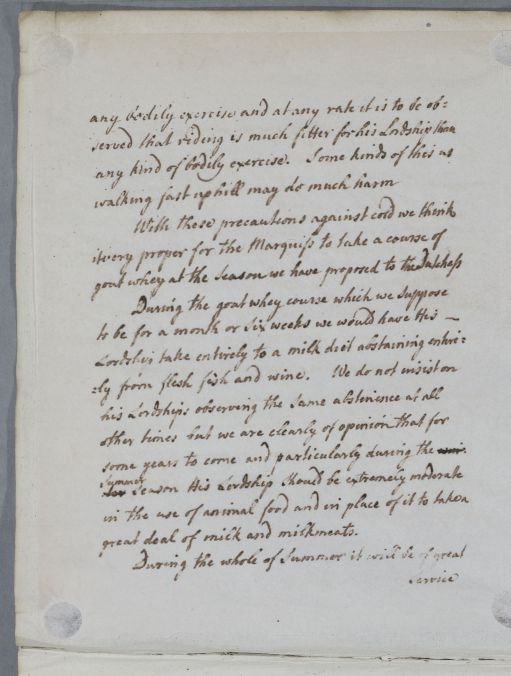 any bodily exercise and at any rate it is to be ob=
served that riding is much fitter for his Lordship than
any kind of bodily exercise. Some kinds of this as
walking fast uphill may do much harm
With these precautions against cold we think
it very proper for the Marquiss to take a course of
goat whey at the season we have proposed to the Dutchess
During the goat whey course which we suppose
to be for a month or six weeks we would have His —
Lordship take entirely to a milk diet abstaining entire=
=ly from flesh fish and wine. We do not insist on
his Lordships observing the same abstinence at all
other times but we are clearly of opinion that for
some years to come and particularly during the
Summer
Season His Lordship should be extremely moderate
in the use of animal food and in place of it to take a
great deal of milk and milkmeats.
During the whole of Summer it will be of great
service